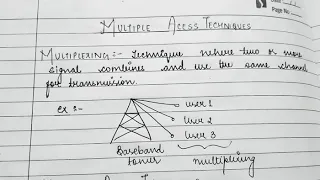 Page No
MULTIPLE ACESS TECHNIQUES
MULTIPLEXING:- Technique where two or more
signal combines and use the same channel
for transmission.
ex :-
user 1
user 2
user 3
Baseband
tower
multiplexing